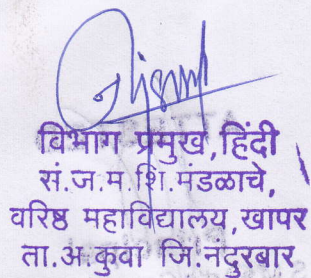 विभाग प्रमुख, हिंदी
सं.ज.म.शि.मंडळाचे,
वरिष्ठ महाविद्यालय, खापर
ता.अ.कुवा जि.नंदुरबार